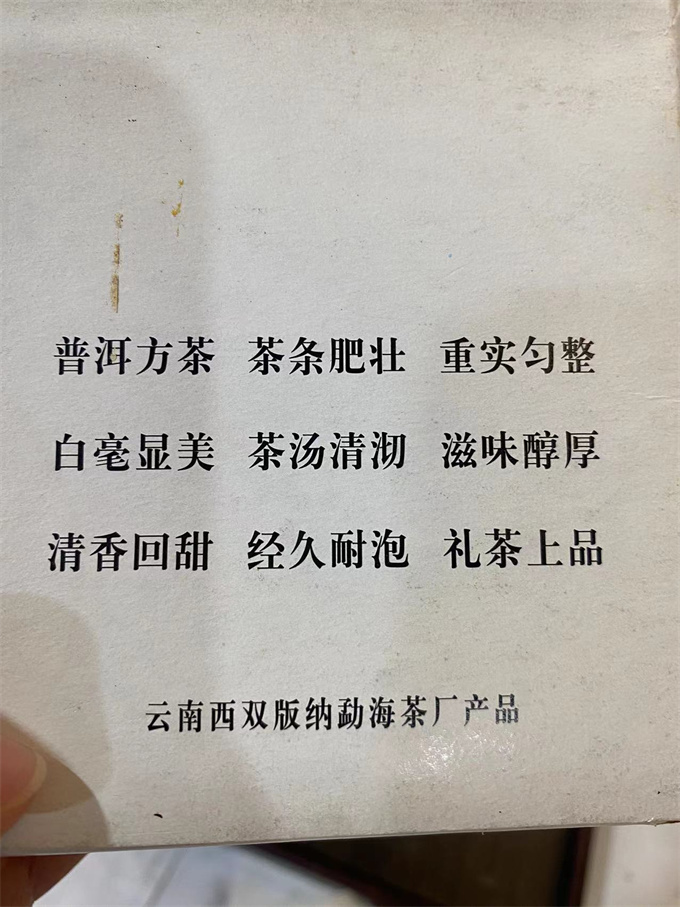 普洱方茶 茶条肥壮 重实匀整
白毫显美 茶汤清沏 滋味醇厚
清香回甜 经久耐泡 礼茶上品
云南西双版纳勐海茶厂产品